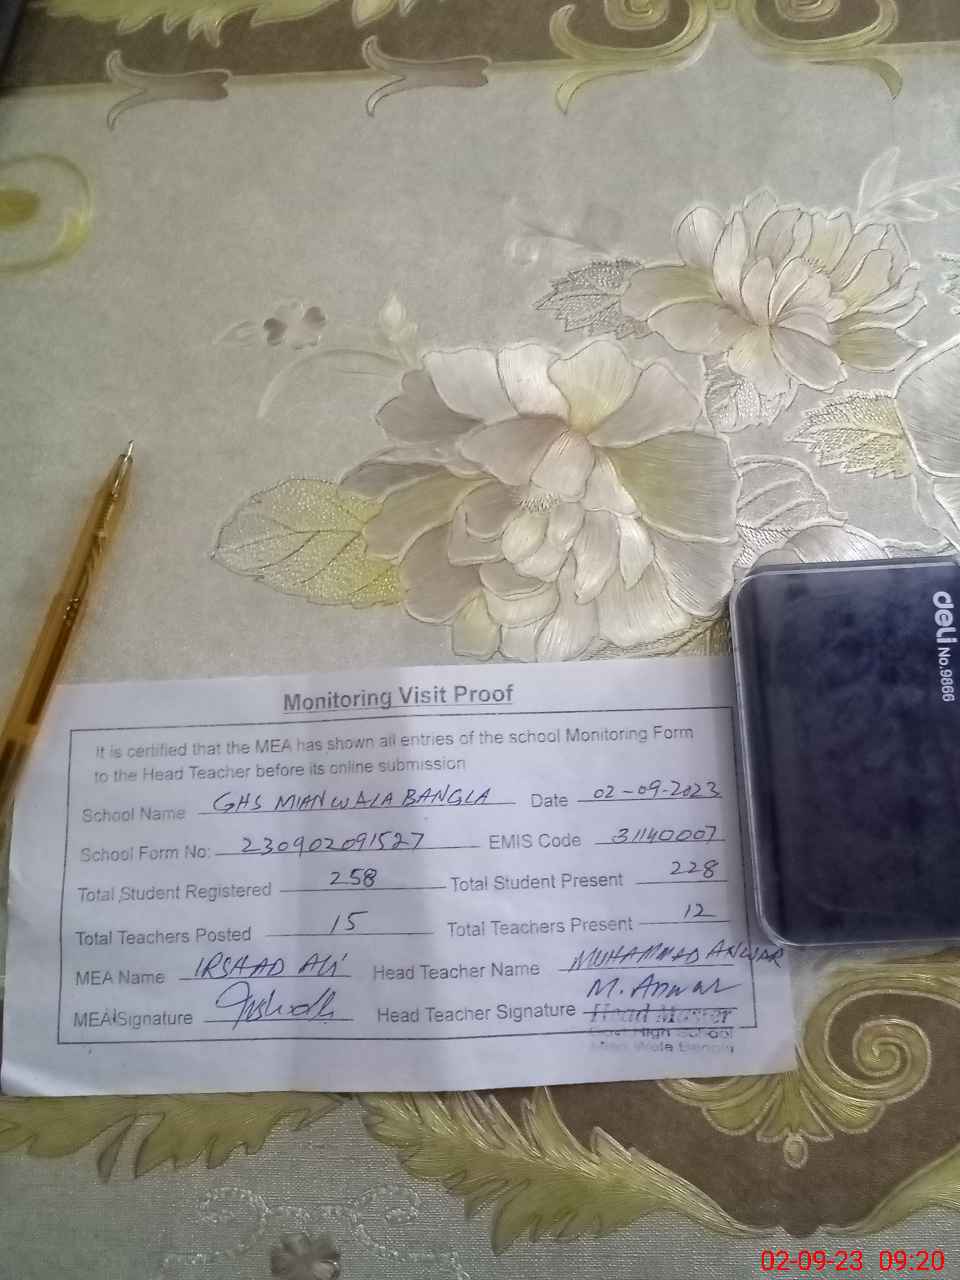 Monitoring Visit Proof
It is certified that the MEA has shown all entries of the school Monitoring Form
to the Head Teacher before its online submission
School Name GHS MIANWALA BANGLA Date 02-09-2023
School Form No: 230902091527 EMIS Code 31140007
Total Student Registered 258 Total Student Present 228
Total Teachers Posted 15 Total Teachers Present 12
MEA Name IRSHAD ALI Head Teacher Name MUHAMMAD ANWAR
MEA Signature Head Teacher Signature M. Anwar
Head Master
Govt High School
Mian Wala Bangla
deli No.9866
02-09-23 09:20